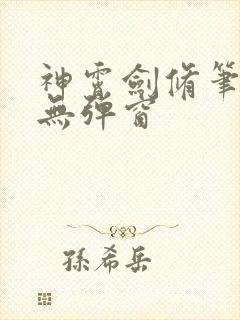 神霄劍脩筆
無彈窗
孫希岳